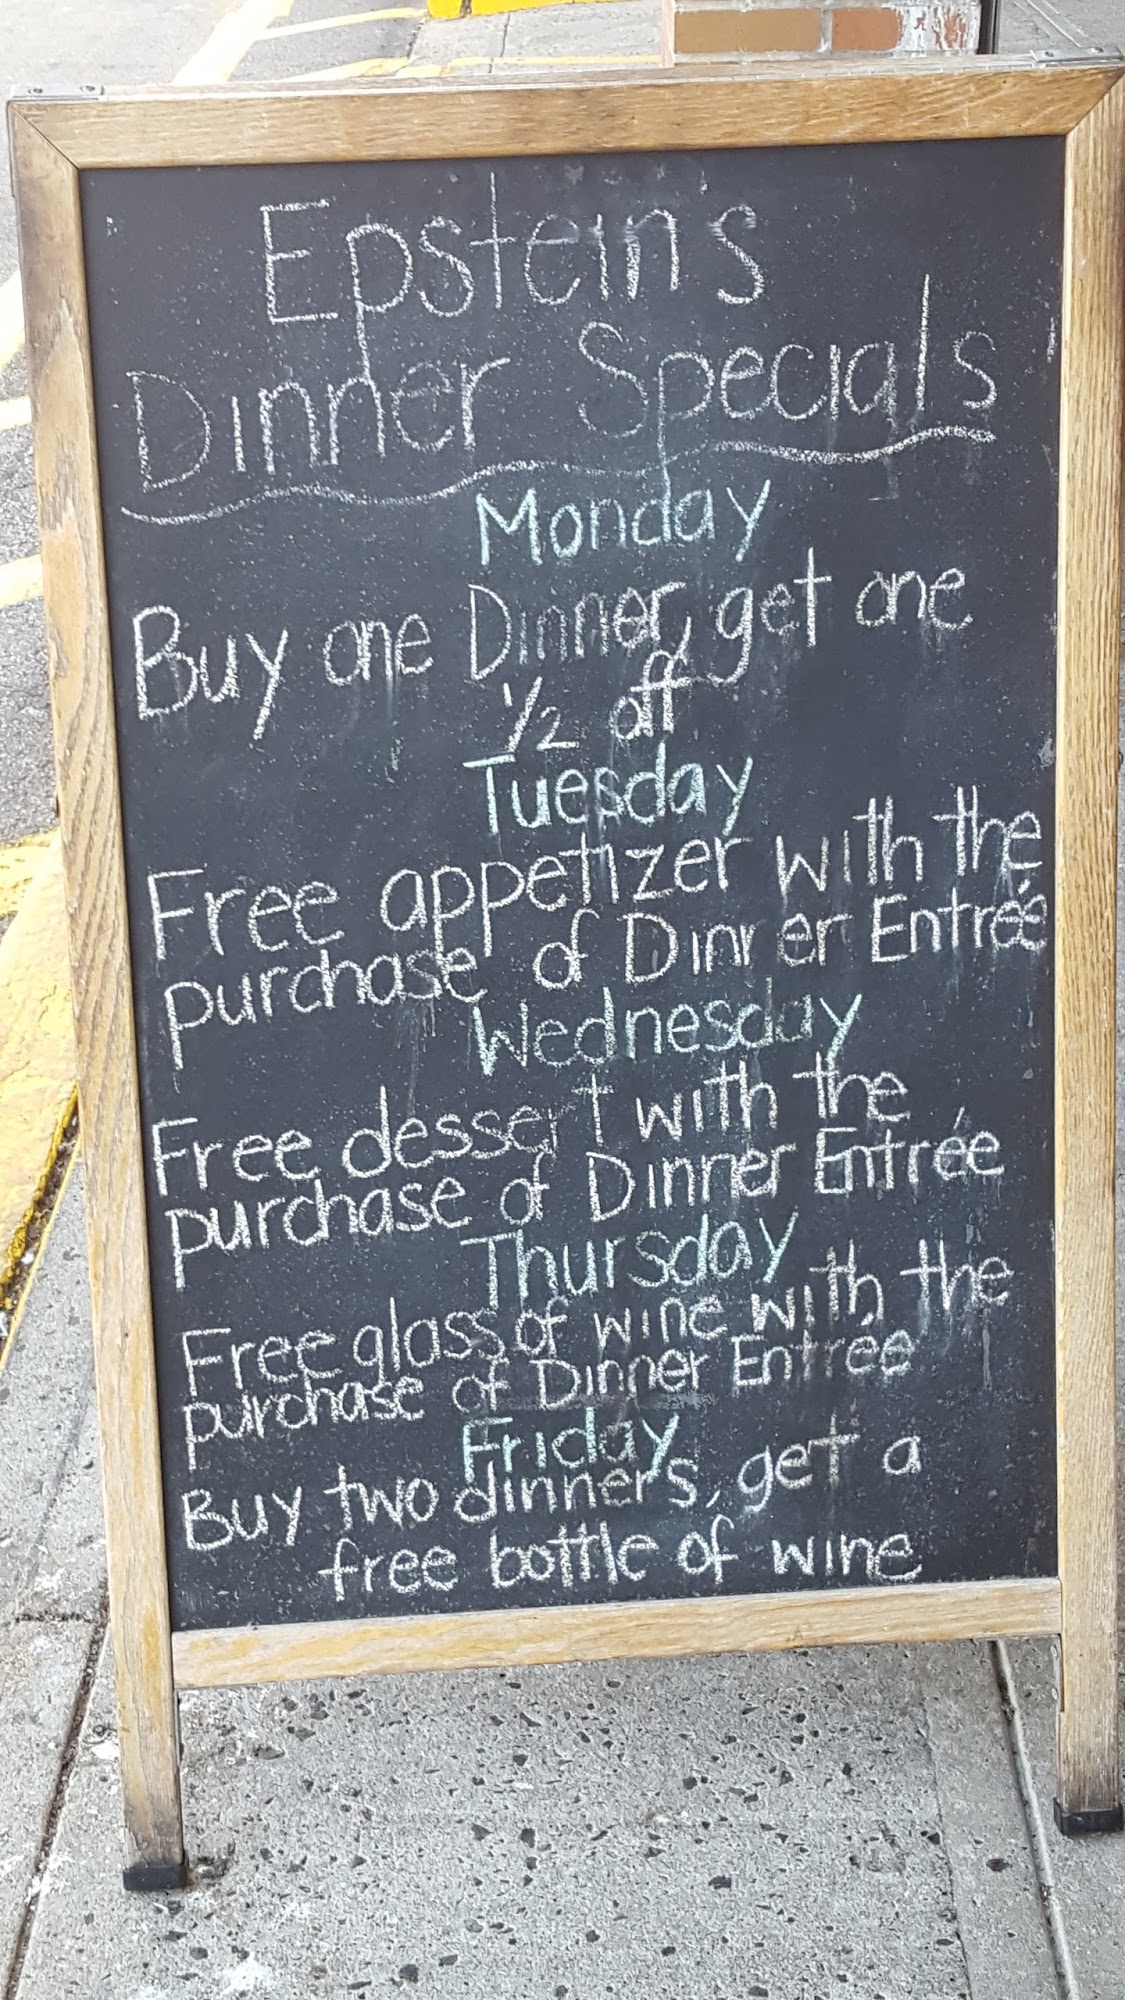 Epstein's
Dinner Specials
Monday
Buy one Dinner, get one
1/2 off
Tuesday
Free appetizer with the
purchase of Dinner Entrée
Wednesday
Free dessert with the
purchase of Dinner Entrée
Thursday
Free glass of wine with the
purchase of Dinner Entrée
Friday
Buy two dinners, get a
free bottle of wine